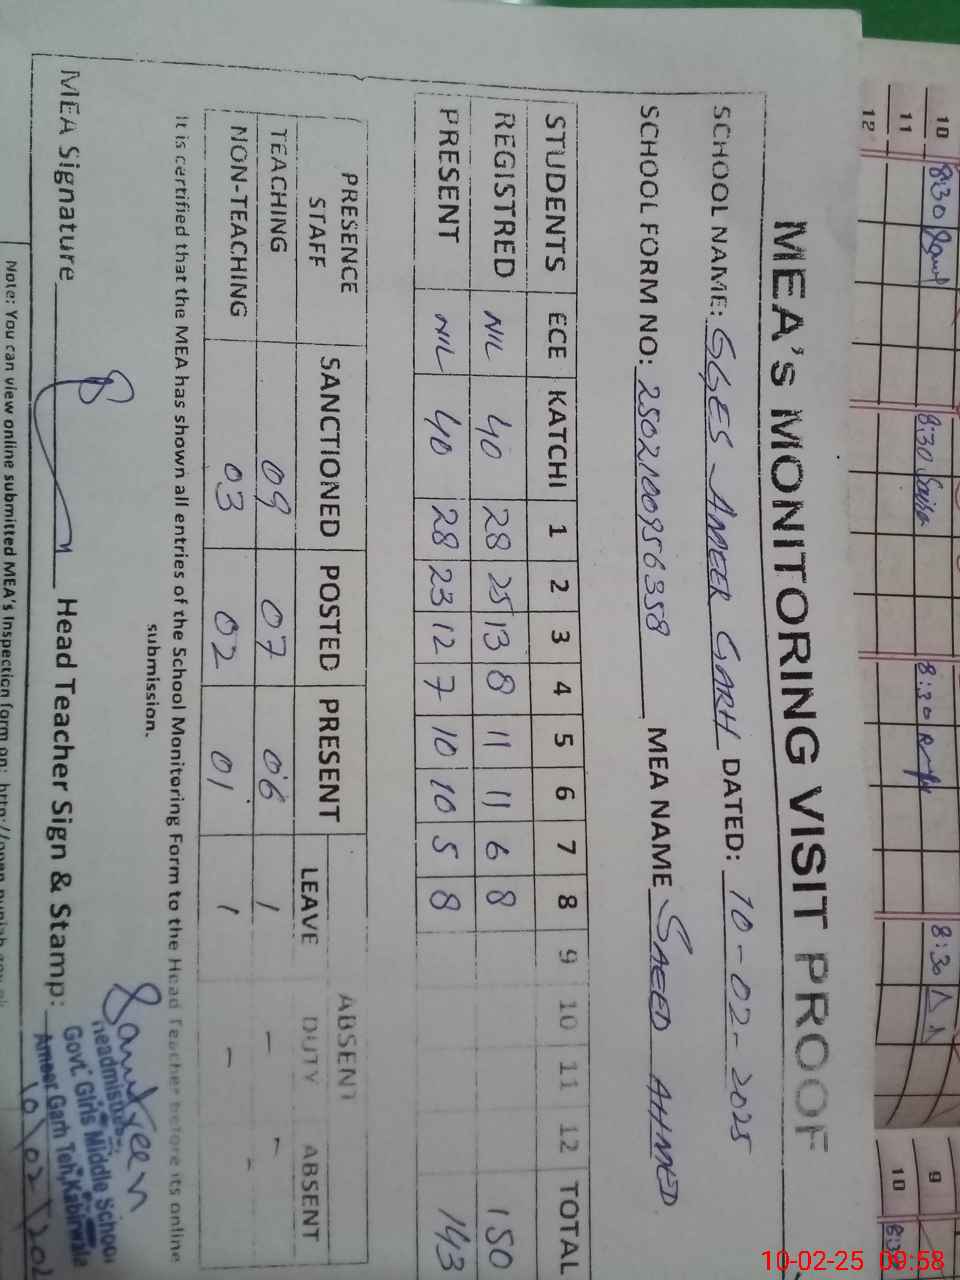 MEA's MONITORING VISIT PROOF
SCHOOL NAME: GGES AMEER GARH DATED: 10-02-2025
SCHOOL FORM NO: 2502100956358 MEA NAME SAEED AHMED
STUDENTS ECE KATCHI 1 2 3 4 5 6 7 8 9 10 11 12 TOTAL
REGISTRED NIL 40 28 25 13 8 11 11 6 8 150
PRESENT NIL 40 28 23 12 7 10 10 5 8 143
PRESENCE STAFF SANCTIONED POSTED PRESENT ABSENT
LEAVE DUTY ABSENT
TEACHING 09 07 06 1 - -
NON-TEACHING 03 02 01 1 - -
It is certified that the MEA has shown all entries of the School Monitoring Form to the Head Teacher before its online
submission.
MEA Signature Head Teacher Sign & Stamp:
Headmistress
Govt. Girls Middle School
Ameer Garh Teh. Kabirwala
Note: You can view online submitted MEA's Inspection form on:
10 8:30 8:30 8:30 8:30 9
11 10
12
10-02-25 09:58